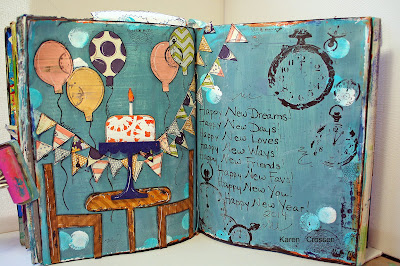 Happy New Dreams!
Happy New Days!
Happy New Loves!
Happy New Ways!
Happy New Friends
Happy New Favs!
Happy New You
Happy New Year!
2014
Karen Crossen